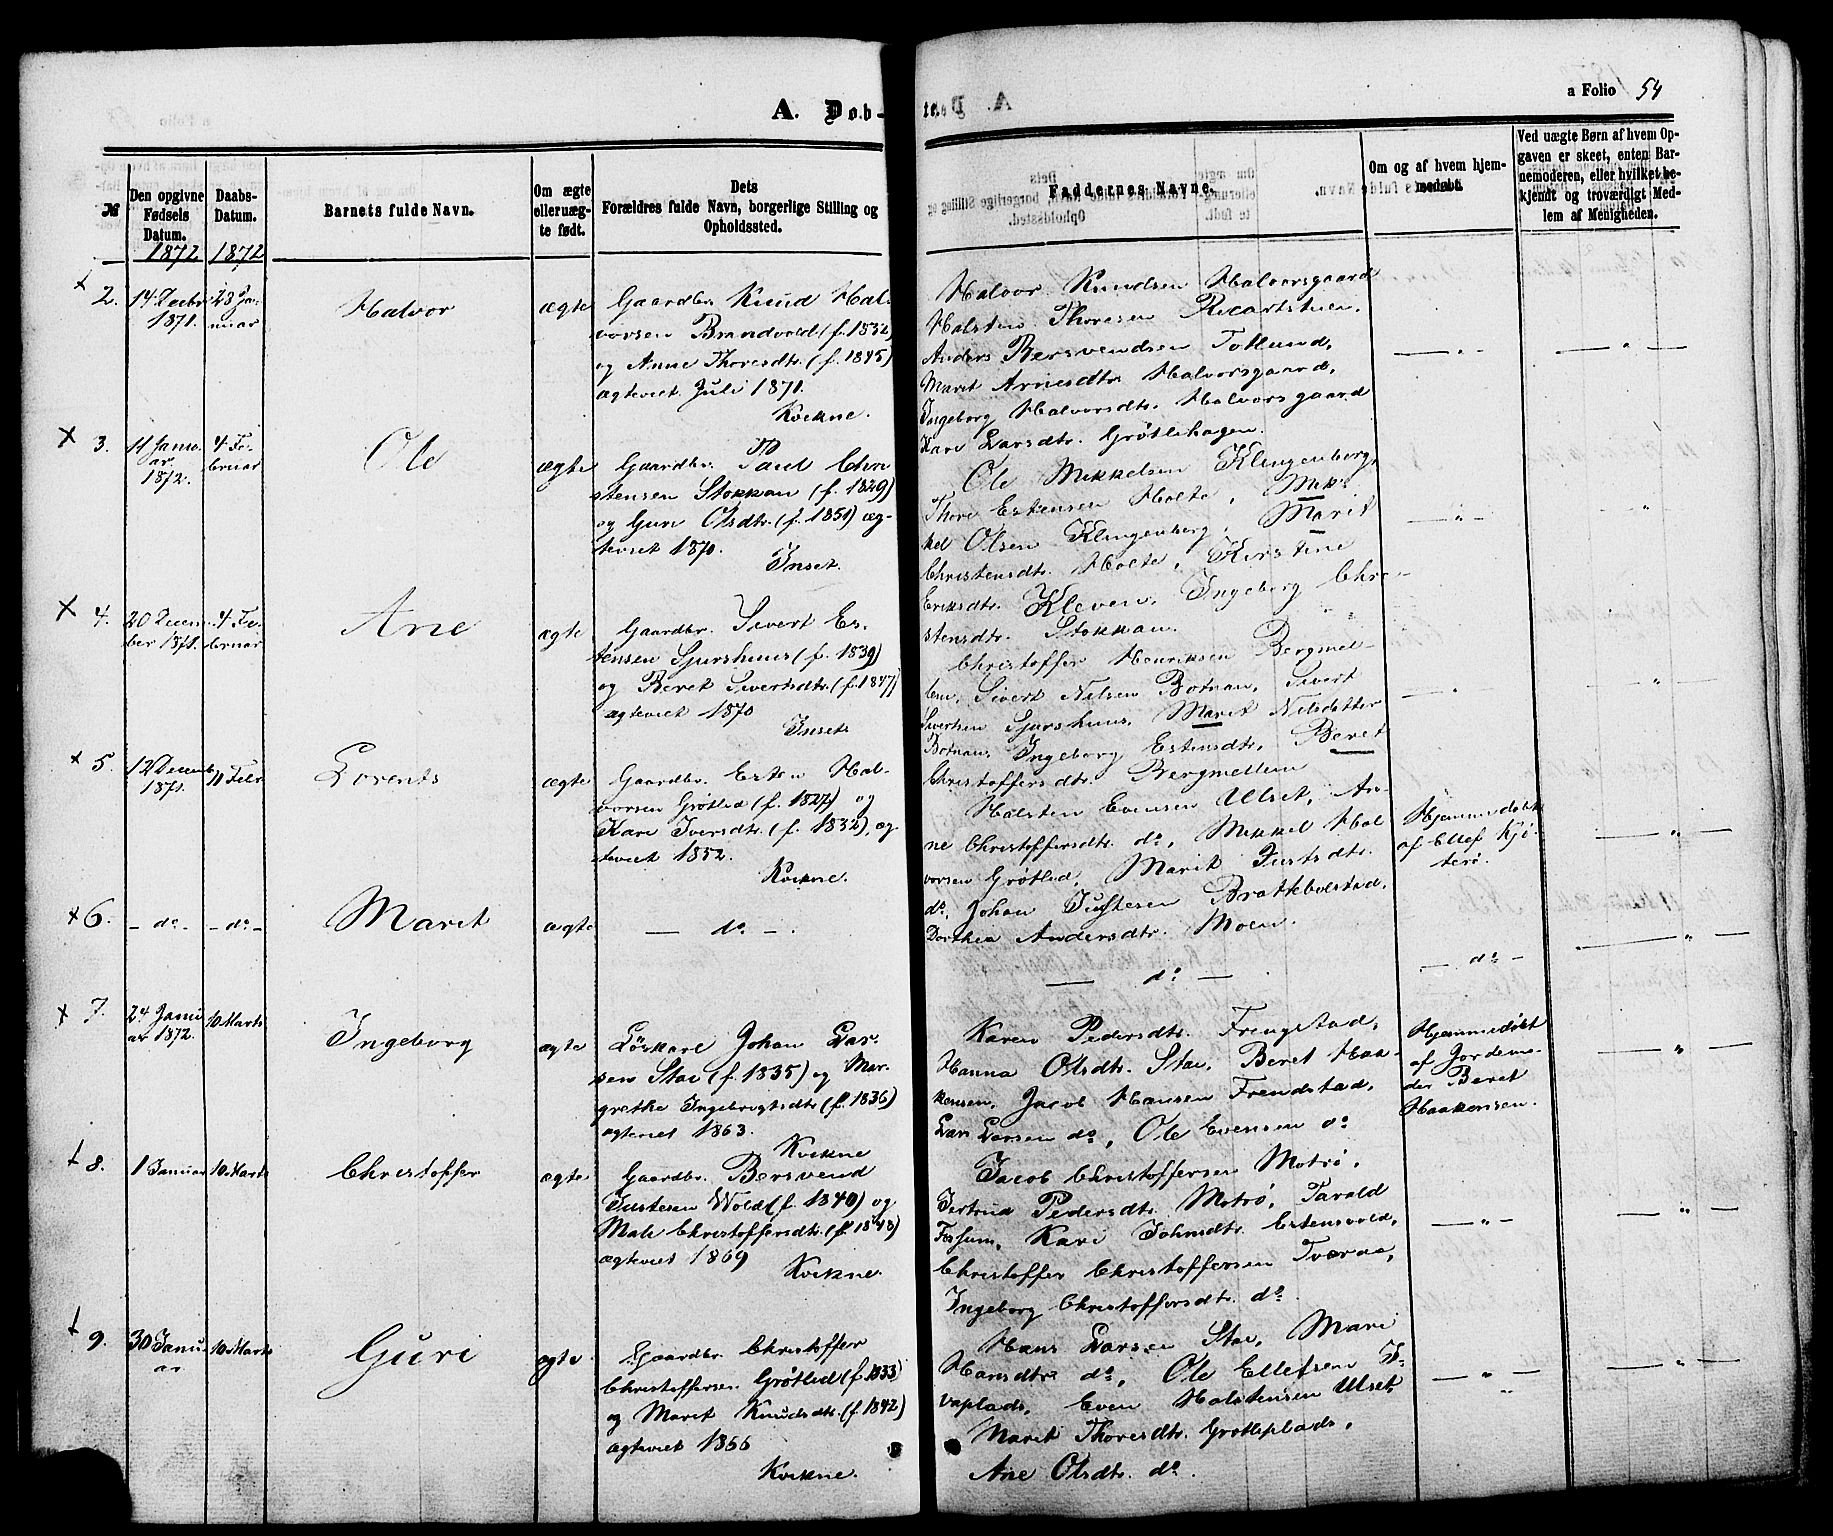 A. Dob-
a Folio 54
№
Den opgivne Fødsels Datum.
Daabs-Datum.
Barnets fulde Navn.
Om ægte eller uæg-te født.
Dets
Forældres fulde Navn, borgerlige Stilling og
Opholdssted.
Faddernes Navne.
Om og af hvem hjem-
Ved uægte Børn af hvem Op-
gaven er skeet, enten Bar-
nemoderen, eller hvilket be-
kjendt og troværdigt Med-
lem af Menigheden.
1872 1872
2. 14 Decbr 1871. 28 Ja-nuar Halvor ægte
Gaardbr. Knud Hal-
vorsen Brandvold (f. 1832)
og Anne Thoresdtr. (f. 1845)
ægteviet Juli 1871.
Kvikne.
Halvor Knudsen Halvorsgaard
Halsten Thoresen
Anders Bersvendsen Totlund,
Marit Arnesdtr. Halvorsgaard,
Ingeborg Halvorsdtr. Halvorsgaard
Kari Larsdtr. Grøtlihagen.
3. 11 Janu-ar 1872. 4 Fe-bruar Ole ægte
Gaardbr. Paul Chri
stensen Stokkan (f. 1829)
og Guri Olsdtr. (f. 1851) æg-
teviet 1870.
Inset.
Ole Mikkelsen Klingenberg,
Thore Estensen Holte, Mik-
kel Olsen Klingenberg, Marit
Christensdtr. Holte, Kirstine
Eriksdtr. Kleven, Ingeborg Chri-
stensdtr. Stokkan.
4. 20 Decem-ber 1871. 4 Fe-bruar Ane ægte
Gaardbr. Sivert Es-
tensen Sjurshuus (f. 1839)
og Beret Sivertsdtr. (f. 1847)
ægteviet 1870
Inset.
Christoffer Henriksen Bergmel-
lem, Sivert Nilsen Botnan, Sivert
Sivertsen Sjurshuus, Marit Nilsdatter
Botnan, Ingeborg Estensdtr., Beret
Christoffersdtr. Bergmellem
5. 12 Decemb 1871. 11 Febr Lorents ægte
Gaardbr. Esten Hal-
vorsen Grøtlid (f. 1827) og
Kari Iversdtr. (f. 1832), æg
teviet 1852.
Kvikne.
Halsten Evensen Ulset, An-
ne Christoffersdtr. do, Mikkel Hal
vorsen Grøtlid, Marit Justsdtr.
do, Johan Justesen Brattebolstad,
Dorthea Andersdtr. Moen.
Hjemmedøbt
af Ellef Kjø-
terø.
6. - do - - do - Marit ægte - do -.
- do -
- do -
7. 24 Janu-ar 1872. 10 Marts Ingeborg ægte
Løskarl Johan Lar-
sen Stai (f. 1835) og Mar-
grethe Ingebrigtsdtr (f. 1836)
ægteviet 1863.
Kvikne
Karen Pedersdtr. Frengstad,
Hanna Olsdtr. Stai, Beret Haa-
kensen, Jacob Hansen Frendstad,
Lars Larsen do, Ole Evensen do
Hjemmedøbt
af Jordemo-
der Beret
Haakensen.
8. 1 Januar 10 Marts Christoffer ægte
Gaardbr. Bersvend
Justesen Wold (f. 1840) og
Mali Christoffersdtr. (f. 1848)
ægteviet 1869
Kvikne.
Jacob Christoffersen Motrø,
Gertrud Pedersdtr. Motrø, Tarald
Fossum, Kari Johnsdtr. Estensvold,
Christoffer Christoffersen Tværaa,
Ingeborg Christoffersdtr. do.
9. 30 Janu-ar 10 Marts Guri ægte
Gaardbr. Christoffer
Christoffersen Grøtlid (f. 1833)
og Marit Knudsdtr. (f. 1842)
ægteviet 1866
Kvikne.
Hans Larsen Stai, Mari
Hansdtr. do, Ole Ellefsen I-
vaplads, Even Halstensen Ulset,
Marit Thoresdtr. Grøtliplads,
Ane Olsdtr. do.